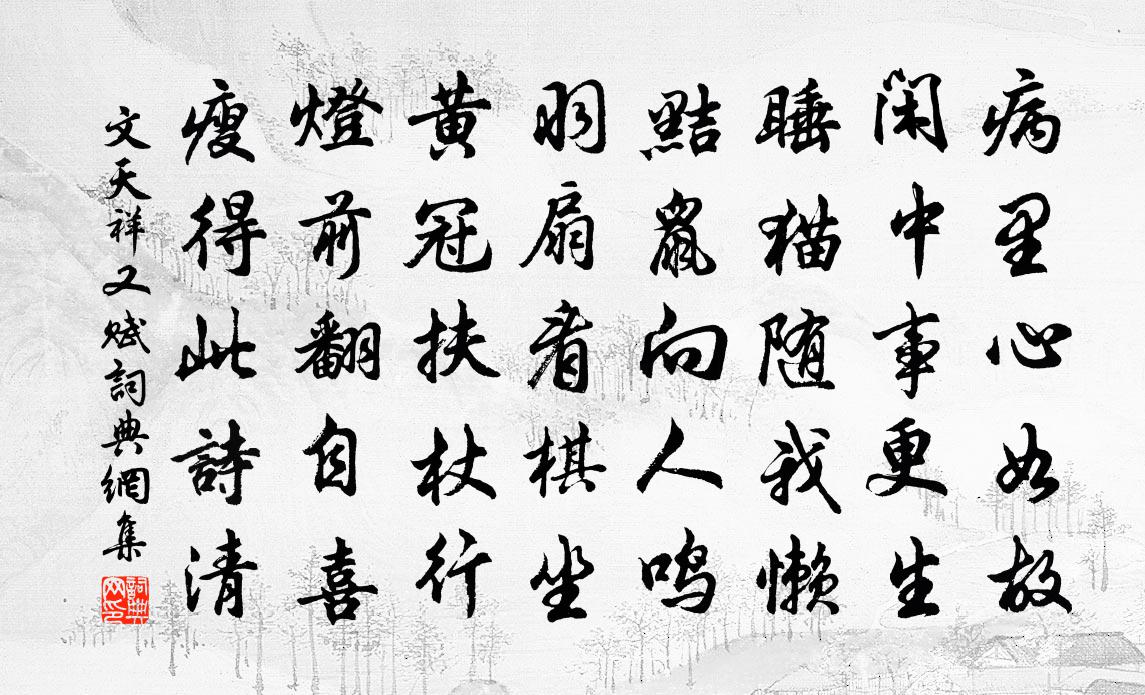 病里心如故
闲中事更生
睡猫随我懒
黠鼠向人鸣
羽扇看棋坐
黄冠扶杖行
燈前翻自喜
瘦得此詩清
文天祥又赋詞典網集
詞典網印